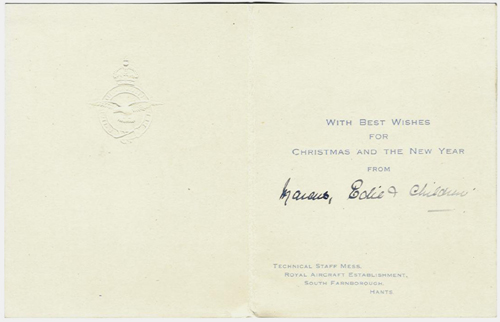 With Best Wishes
for
Christmas and the New Year
from
Marcus, Edie & Children
Technical Staff Mess,
Royal Aircraft Establishment,
South Farnborough,
Hants.